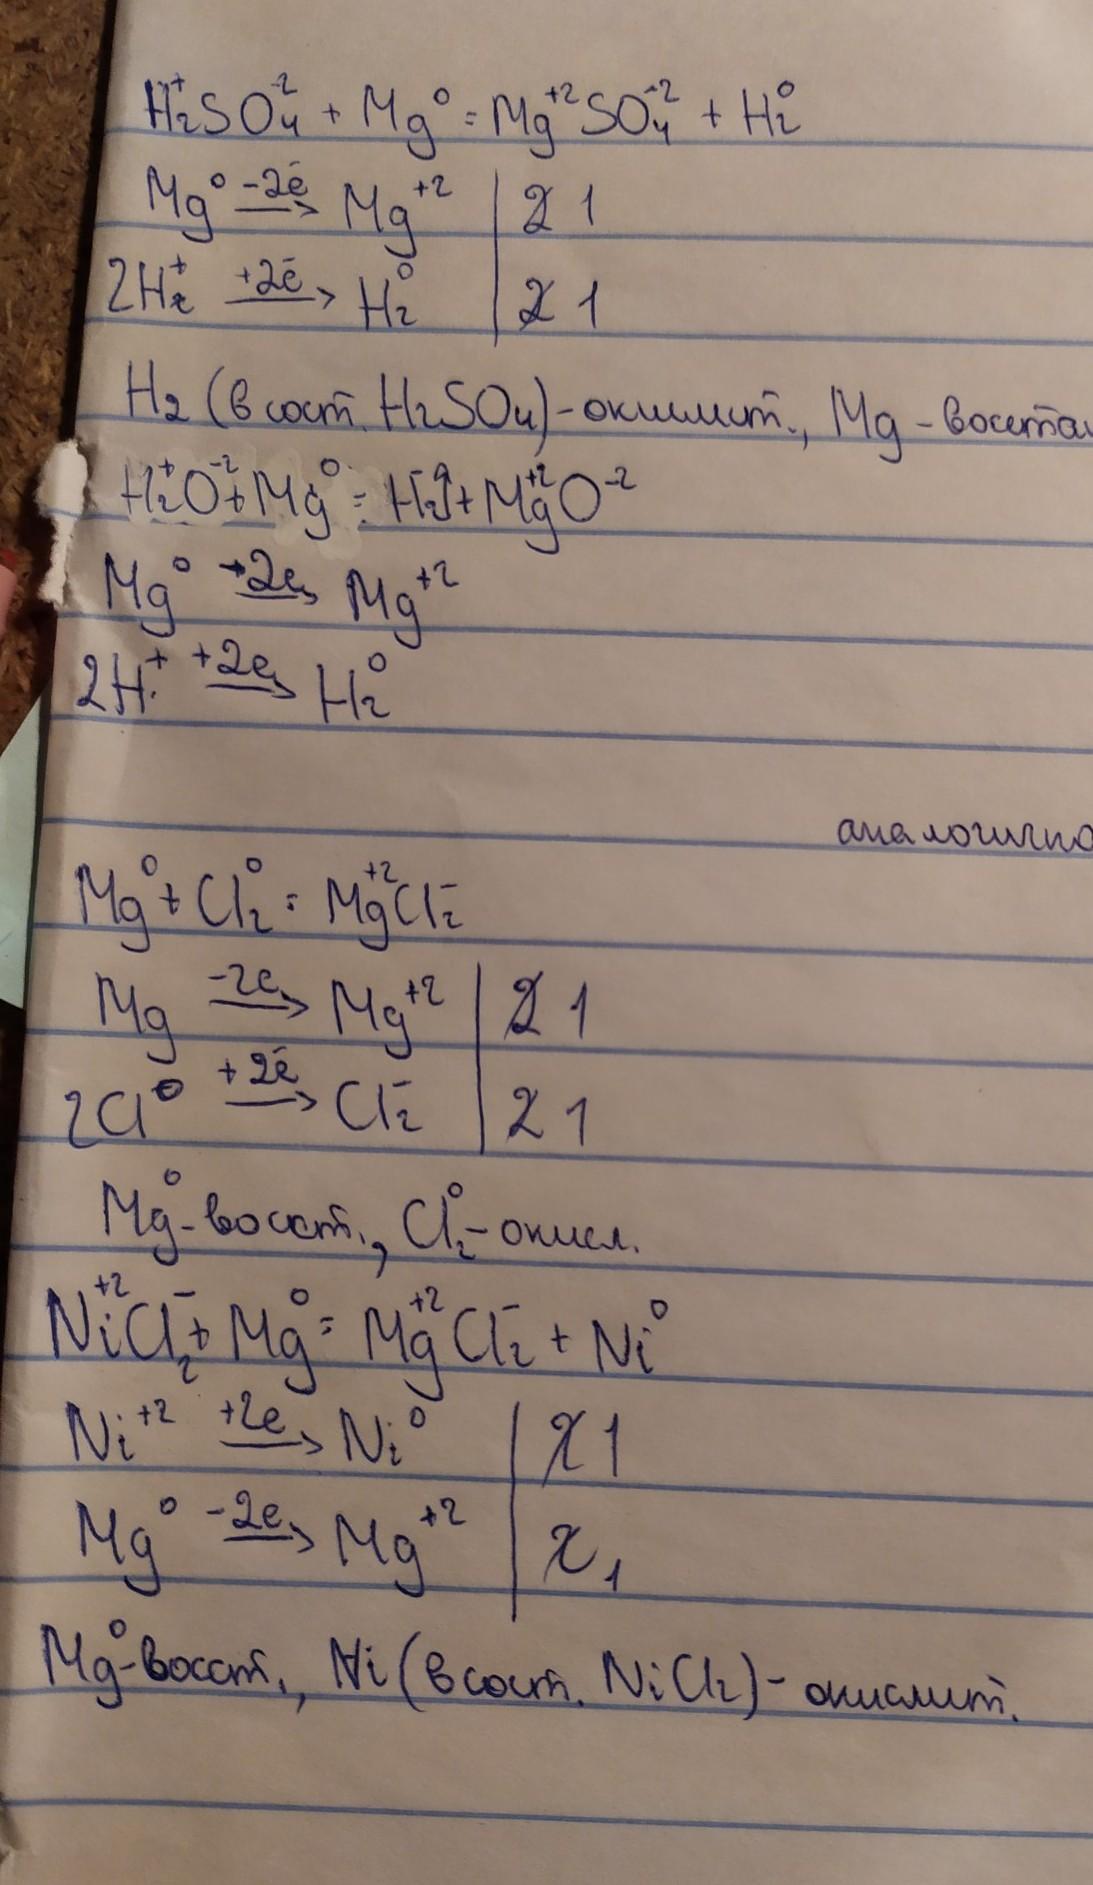 H₂⁺SO₄⁻² + Mg⁰ = Mg⁺²SO₄⁻² + H₂⁰
Mg⁰ -2ē → Mg⁺² | 2 1
2H₂⁺ +2ē → H₂⁰ | 2 1
H₂ (в сост. H₂SO₄) - окислит., Mg - восста
H₂⁺O⁻² + Mg⁰ = H₂⁰ + Mg⁺²O⁻²
Mg⁰ -2e → Mg⁺²
2H⁺ +2e → H₂⁰
аналогично
Mg⁰ + Cl₂⁰ = Mg⁺²Cl₂⁻
Mg -2e → Mg⁺² | 2 1
2Cl⁰ +2ē → Cl₂⁻ | 2 1
Mg⁰ - восст., Cl₂⁰ - окисл.
Ni⁺²Cl₂⁻ + Mg⁰ = Mg⁺²Cl₂⁻ + Ni⁰
Ni⁺² +2e → Ni⁰ | 2 1
Mg⁰ -2e → Mg⁺² | 2 1
Mg⁰ - восст., Ni (в сост. NiCl₂) - окислит.